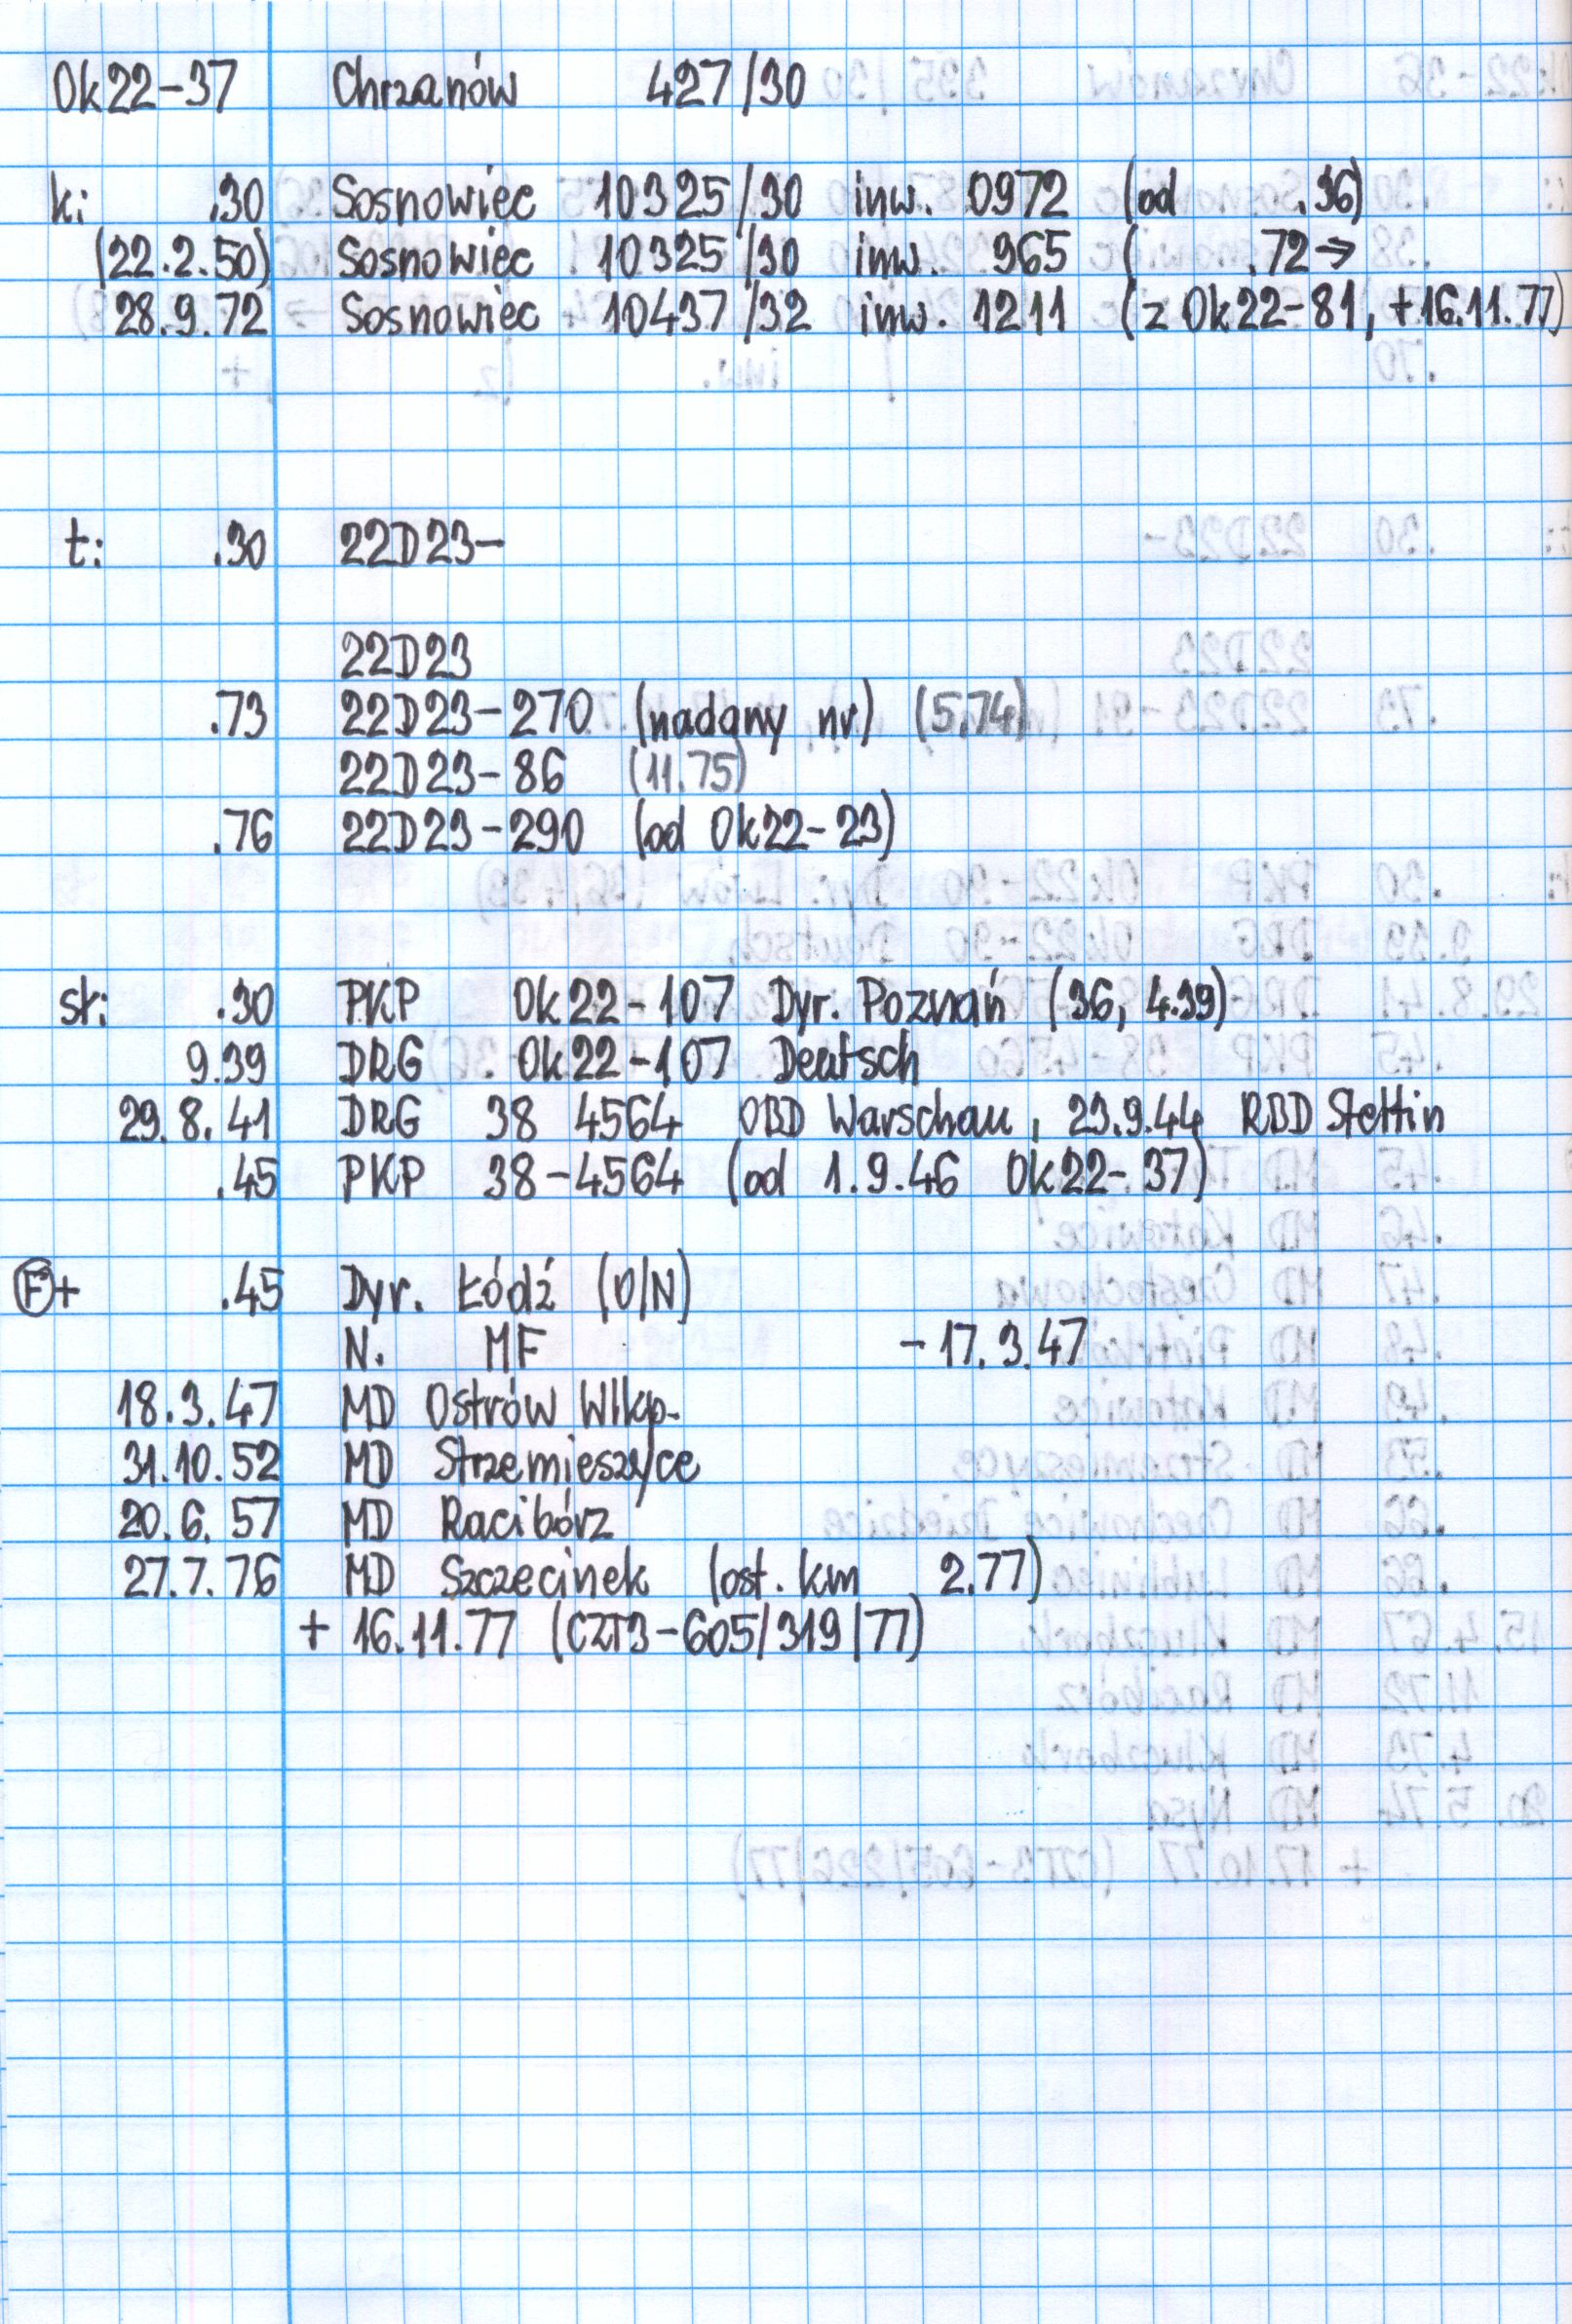 Ok22-37 Chrzanów 427/30
k: .30 Sosnowiec 10325/30 inw. 0972 (od .36)
(22.2.50) Sosnowiec 10325/30 inw. 965 ( .72→
28.9.72 Sosnowiec 10437/32 inw. 1211 (z Ok22-81, +16.11.77)
t: .30 22D23-
22D23
.73 22D23-270 (nadany nr) (5.74)
22D23-86 (11.75)
.76 22D23-290 (od Ok22-23)
st: .30 PKP Ok22-107 Dyr. Poznań (36, 4.39)
9.39 DRG Ok22-107 Deutsch
29.8.41 DRG 38 4564 OBD Warschau, 23.9.44 RBD Stettin
.45 PKP 38-4564 (od 1.9.46 Ok22-37)
Ⓕ+ .45 Dyr. Łódź (O/N)
N. MF - 17.3.47
18.3.47 MD Ostrów Wlkp.
31.10.52 MD Strzemieszyce
20.6.57 MD Racibórz
27.7.76 MD Szczecinek (ost. km 2.77)
+ 16.11.77 (CZT3-605/319/77)